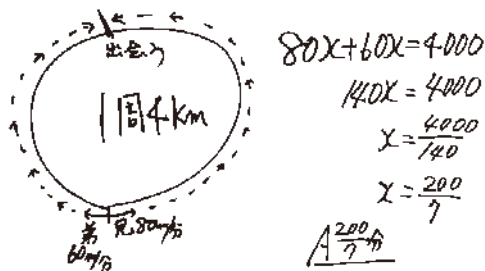 出会う
1周4km
弟 兄80m/分
60m/分
80x+60x=4000
140x=4000
x=4000/140
x=200/7
A 200/7分